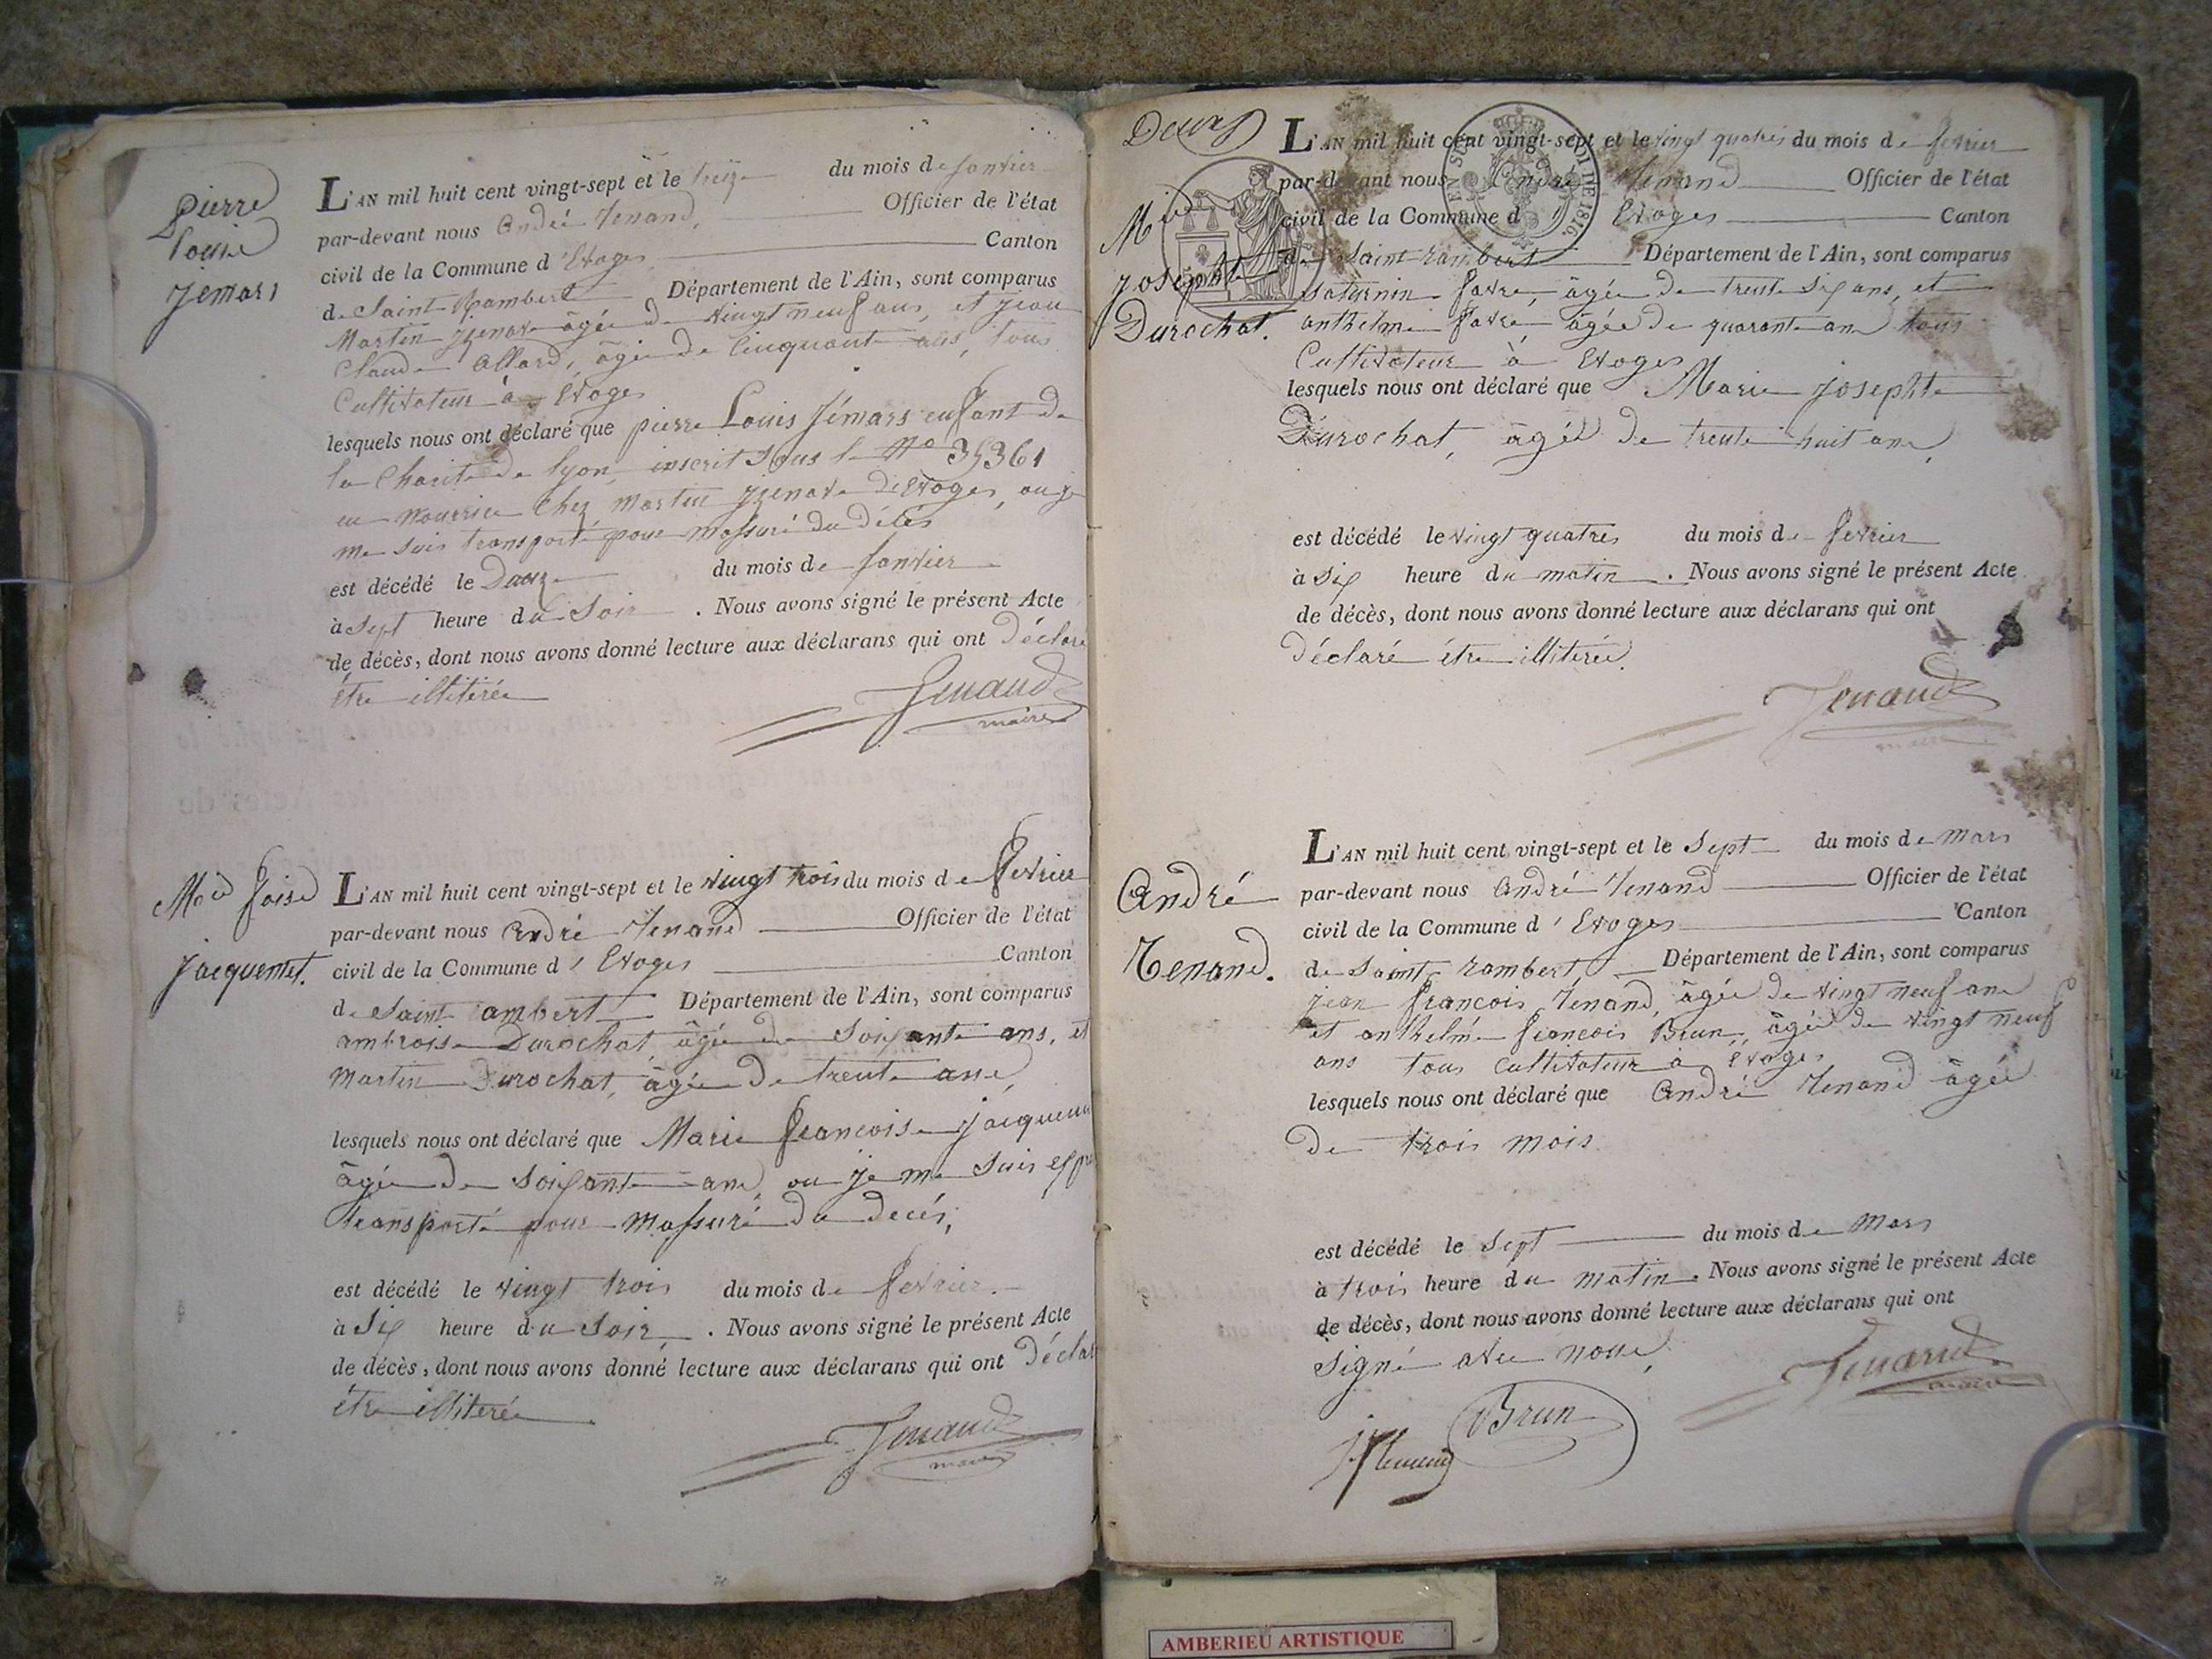 Pierre
Louis
Jémars
L'AN mil huit cent vingt-sept et le treize du mois de janvier
par-devant nous André Tenand, Officier de l'état
civil de la Commune d'Evoges Canton
de Saint Rambert Département de l'Ain, sont comparus
Martin Jzenave âgée de vingt neuf ans, et jean
Claude Allard, âgée de Cinquante ans, tous
Cultivateur à Evoges
lesquels nous ont déclaré que pierre Louis Jémars enfant de
la Charité de lyon, inscrit sous le No 35361
en nourrice chez martin jzenave d'Evoges, ou je
me suis transporté pour massuré du décés
est décédé le Douze du mois de janvier
à sept heure du soir . Nous avons signé le présent Acte
de décès, dont nous avons donné lecture aux déclarans qui ont déclaré
être illitérée
Tenand
maire
Mie foise
Jacquemet.
L'AN mil huit cent vingt-sept et le vingt trois du mois de fevrier
par-devant nous André Tenand Officier de l'état
civil de la Commune d'Evoges Canton
de Saint ambert Département de l'Ain, sont comparus
ambroise Durochat, âgée de soixante ans, et
Martin Durochat, âgée de trente ans,
lesquels nous ont déclaré que Marie françoise jacquem
âgée de soixante ans, ou je me suis
transporté pour massuré du decés,
est décédé le vingt trois du mois de fevrier.
à six heure du soir . Nous avons signé le présent Acte
de décès, dont nous avons donné lecture aux déclarans qui ont déclar
être illiterée
Tenand
maire
Deux
Mie
josephte
Durochat.
L'AN mil huit cent vingt-sept et le vingt quatres du mois de fevrier
par-devant nous André Tenand Officier de l'état
civil de la Commune d' Evoges Canton
de saint rambert Département de l'Ain, sont comparus
saturnin favre, âgée de trente six ans, et
anthelme favre, âgée de quarante ans tous
Cultivateur à Evoges
lesquels nous ont déclaré que Marie josephte
Durochat, âgée de trente huit ans,
est décédé le vingt quatres du mois de fevrier
à six heure du matin . Nous avons signé le présent Acte
de décès, dont nous avons donné lecture aux déclarans qui ont
déclaré étre illiterée.
Tenand
maire
André
Tenand.
L'AN mil huit cent vingt-sept et le sept du mois de mars
par-devant nous André Tenand Officier de l'état
civil de la Commune d'Evoges Canton
de saint rambert, Département de l'Ain, sont comparus
jean françois Tenand, âgée de vingt neuf ans
et anthelme françois Brun, âgée de vingt neuf
ans tous Cultivateur a Evoges
lesquels nous ont déclaré que André Tenand âgée
de trois mois
est décédé le sept du mois de mars
à trois heure du matin. Nous avons signé le présent Acte
de décès, dont nous avons donné lecture aux déclarans qui ont
signé avec nous,
Tenand
maire
Brun
AMBERIEU ARTISTIQUE